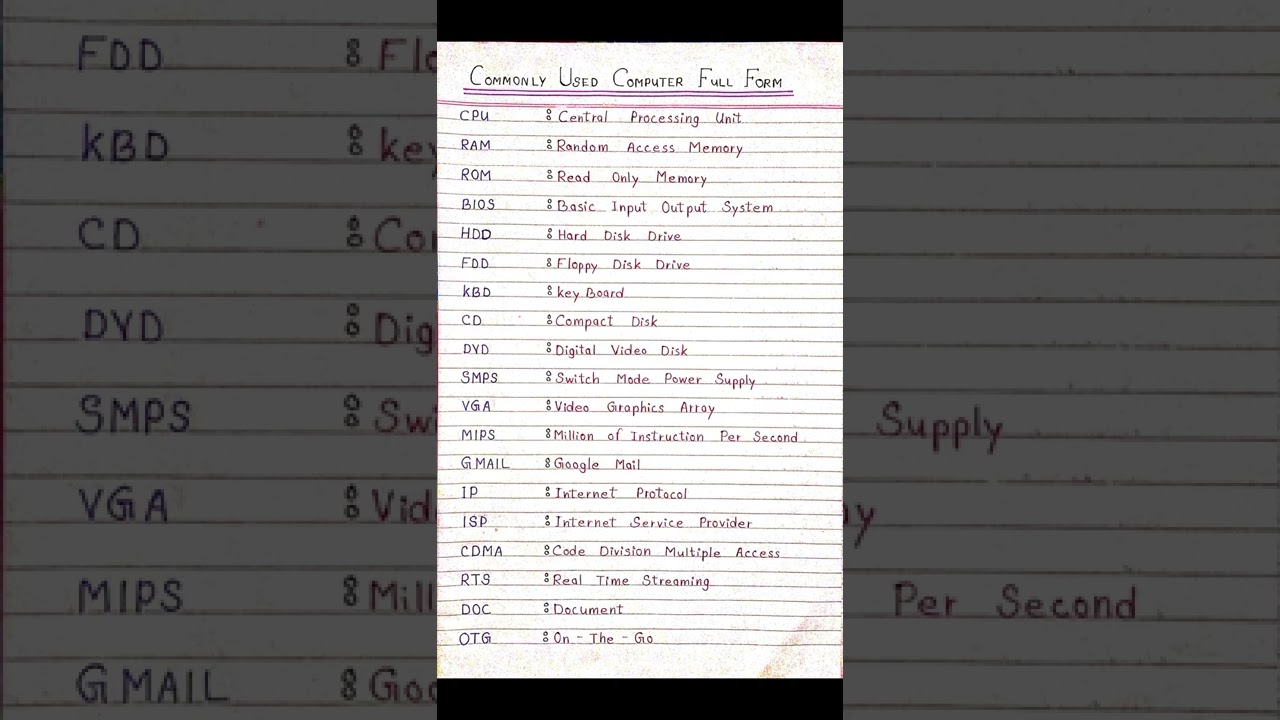 COMMONLY USED COMPUTER FULL FORM
CPU : Central Processing Unit
RAM : Random Access Memory
ROM : Read Only Memory
BIOS : Basic Input Output System
HDD : Hard Disk Drive
FDD : Floppy Disk Drive
KBD : key Board
CD : Compact Disk
DYD : Digital Video Disk
SMPS : Switch Mode Power Supply
VGA : Video Graphics Array
MIPS : Million of Instruction Per Second
GMAIL : Google Mail
IP : Internet Protocol
ISP : Internet Service Provider
CDMA : Code Division Multiple Access
RTS : Real Time Streaming
DOC : Document
OTG : On - The - Go